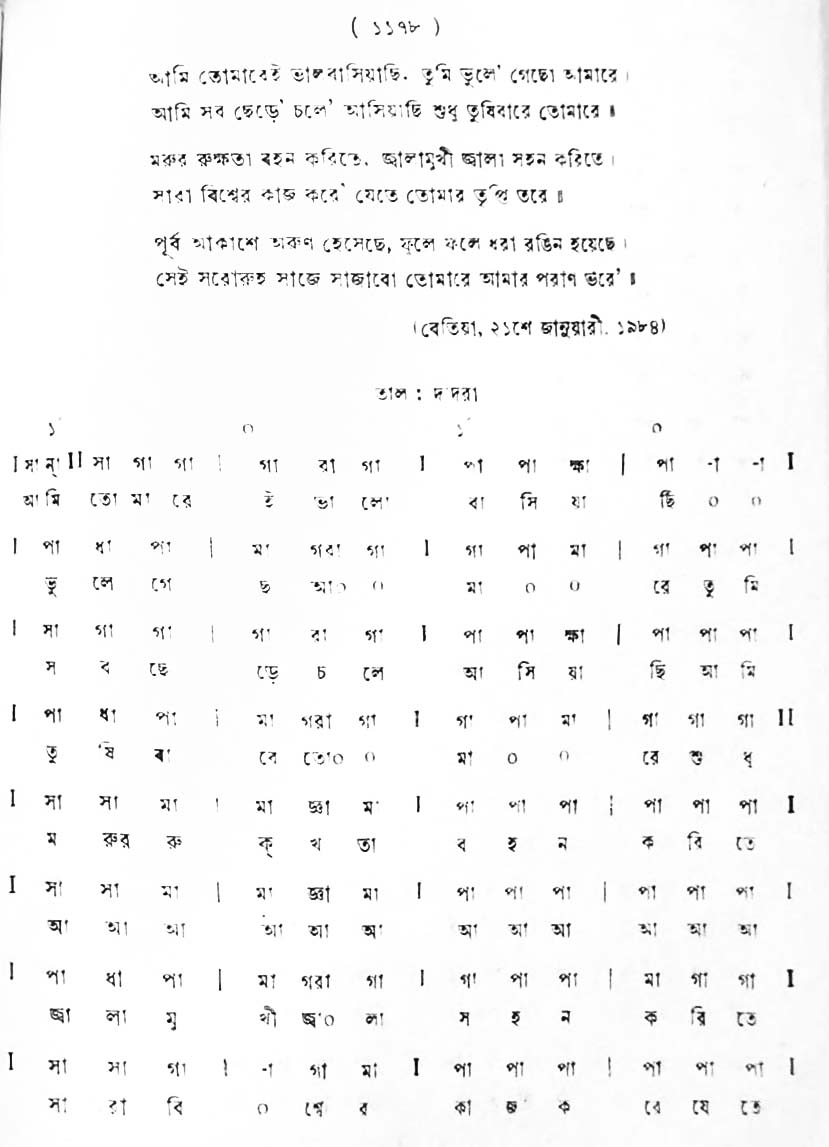 ( ১১৭৮ )
আমি তোমারেই ভালবাসিয়াছি. তুমি ভুলে' গেছো আমারে।
আমি সব ছেড়ে' চলে' আসিয়াছি শুধু তুষিবারে তোমারে॥
মরুর রুক্ষতা বহন করিতে, জ্বালামুখী জ্বালা সহন করিতে।
সারা বিশ্বের কাজ করে' যেতে তোমার তৃপ্তি তরে॥
পূর্ব আকাশে অরুণ হেসেছে, ফুলে ফলে ধরা রঙিন হয়েছে।
সেই সরোরুহ সাজে সাজাবো তোমারে আমার পরাণ ভরে'॥
(বেতিয়া, ২১শে জানুয়ারী. ১৯৮৪)
তাল : দাদরা
১´ ০ ১´ ০
I সা ন্া II সা গা গা | গা রা গা I পা পা ক্ষা | পা -া -া I
আ মি তো মা রে ই ভা লো বা সি য়া ছি ০ ০
I পা ধা পা | মা গরা গা I গা পা মা | গা পা পা I
ভু লে গে ছ আ০ ০ মা ০ ০ রে তু মি
I সা গা গা | গা রা গা I পা পা ক্ষা | পা পা পা I
স ব ছে ড়ে চ লে আ সি য়া ছি আ মি
I পা ধা পা | মা গরা গা I গা পা মা | গা গা গা II
তু ষি বা রে তো০ ০ মা ০ ০ রে শু ধু
I সা সা মা | মা জ্ঞা মা I পা পা পা | পা পা পা I
ম রুর রু ক্ খ তা ব হ ন ক রি তে
I সা সা মা | মা জ্ঞা মা I পা পা পা | পা পা পা I
আ আ আ আ আ আ আ আ আ আ আ আ
I পা ধা পা | মা গরা গা I গা পা পা | মা গা গা I
জ্বা লা মু খী জ্বা০ লা স হ ন ক রি তে
I সা সা গা | -া গা মা I পা পা পা | পা পা পা I
সা রা বি ০ শ্বে র কা জ ক রে যে তে